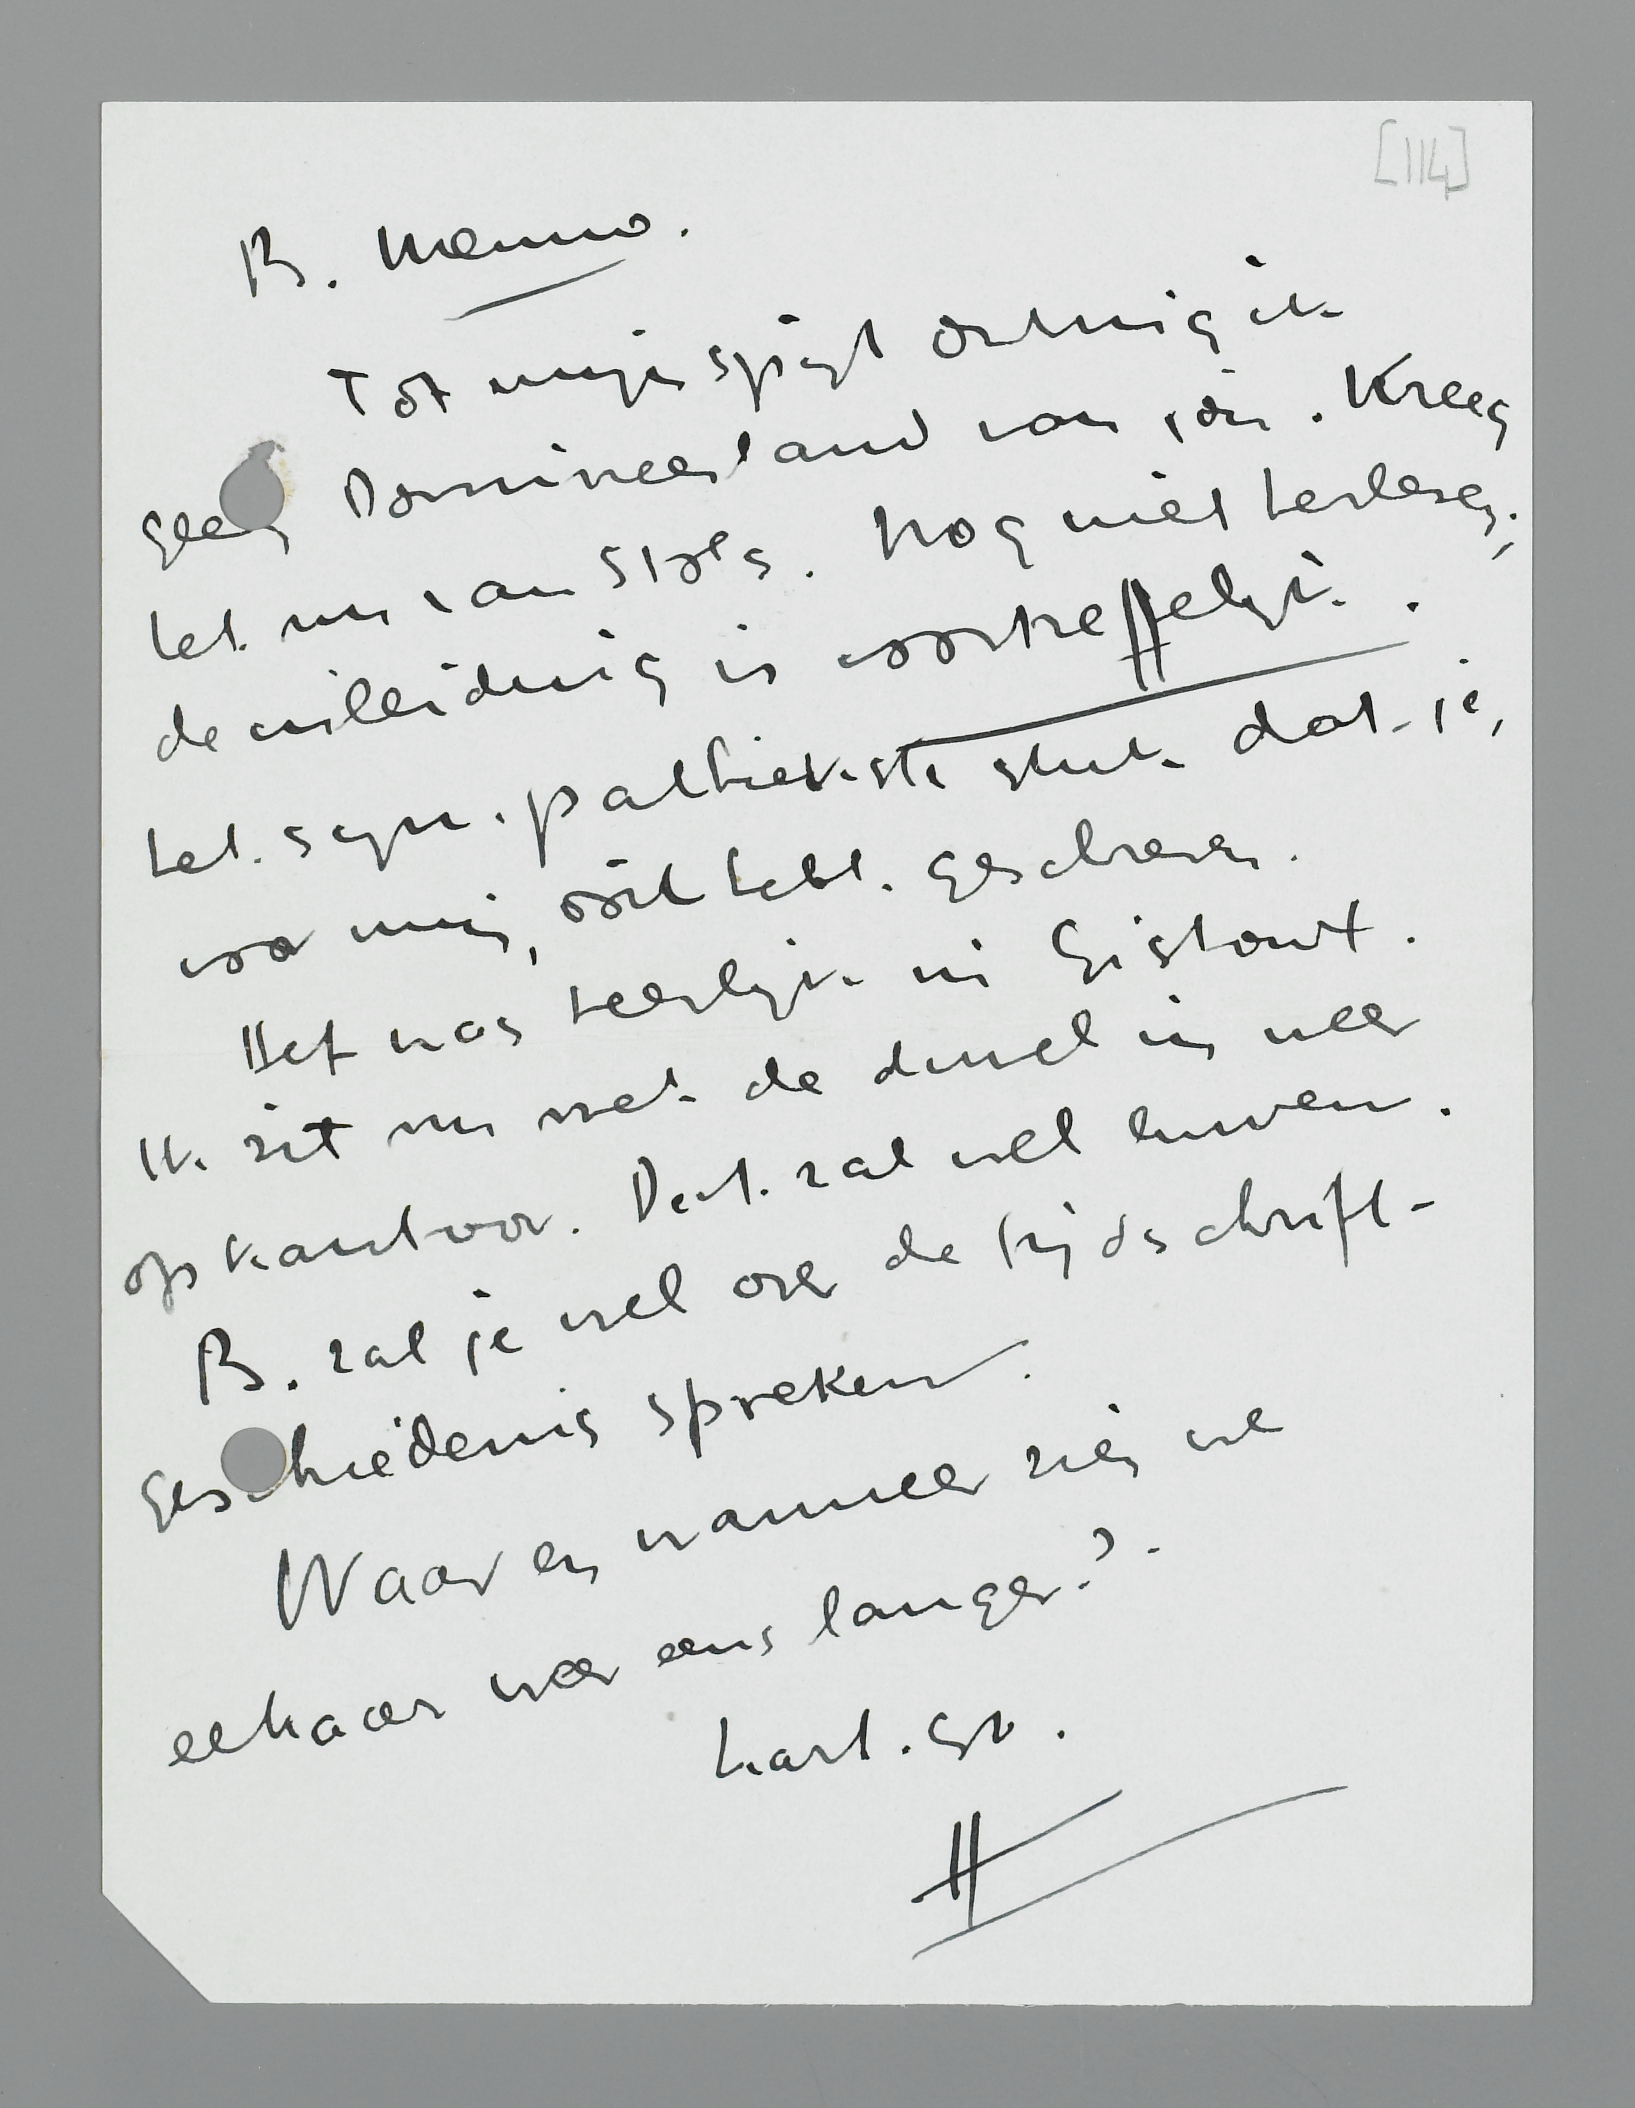 [114]
B. Menno.
Tot mijn spijt ontving ik
geen Domineesland van jou. Kreeg
het nu van Stols. Nog niet herlezen;
de inleiding is voortreffelijk.
het sympathiekste stuk dat je,
voor mij, óóit hebt geschreven.
Het was heerlijk in Gistoux.
Ik zit nu met de duvel in weer
op kantoor. Dat zal wel luwen.
B. zal je wel over de tijdschrift-
geschiedenis spreken.
Waar en wanneer zien we
elkaar weer eens langer?
hart. gr.